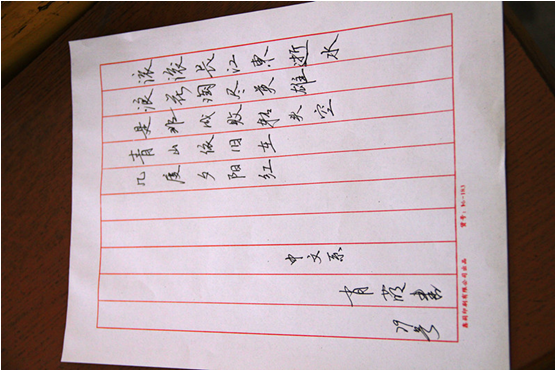 滚滚长江东逝水
浪花淘尽英雄
是非成败转头空
青山依旧在
几度夕阳红
中文系
印刷有限公司出品